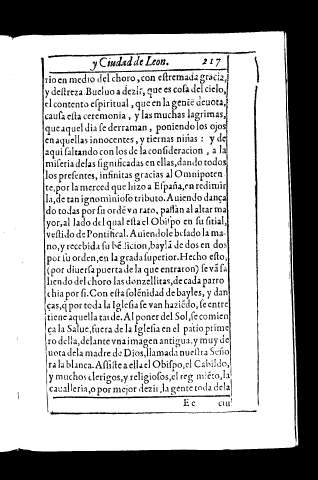 y Ciudad de Leon. 217
rio en medio del choro, con estremada gracia,
y destreza. Bueluo a dezir, que es cosa del cielo,
el contento espiritual, que en la gente deuota,
causa esta ceremonia, y las muchas lagrimas,
que aquel dia se derraman, poniendo los ojos
en aquellas innocentes, y tiernas niñas: y de
aqui saltando con los de la consideracion, a la
miseria de las significadas en ellas, dando todos
los presentes, infinitas gracias al Omnipoten
te, por la merced que hizo a España, en redimir
la, de tan ignominioso tributo. Auiendo dança
do todas por su ordē vn rato, passan al altar ma
yor, al lado del qual esta el Obispo en su sitial,
vestido de Pontifical. Auiendole besado la ma
no, y recebida su bēdicion, baylā de dos en dos
por su orden, en la grada superior. Hecho esto,
(por diuersa puerta de la que entraron) se vā sa
liendo del choro las donzellitas, de cada parro
chia por si. Con esta solēnidad de bayles, y dan
ças, q̄ por toda la Iglesia se van haziēdo, se entre
tiene aquella tarde. Al poner del Sol, se comien
ça la Salue, fuera de la Iglesia en el patio prime
ro della, delante vna imagen antigua, y muy de
uota de la madre de Dios, llamada nuestra Seño
ra la blanca. Assiste a ella el Obispo, el Cabildo,
y muchos clerigos, y religiosos, el regimiēto, la
caualleria, o por mejor dezir, la gente toda de la
Ee ciu